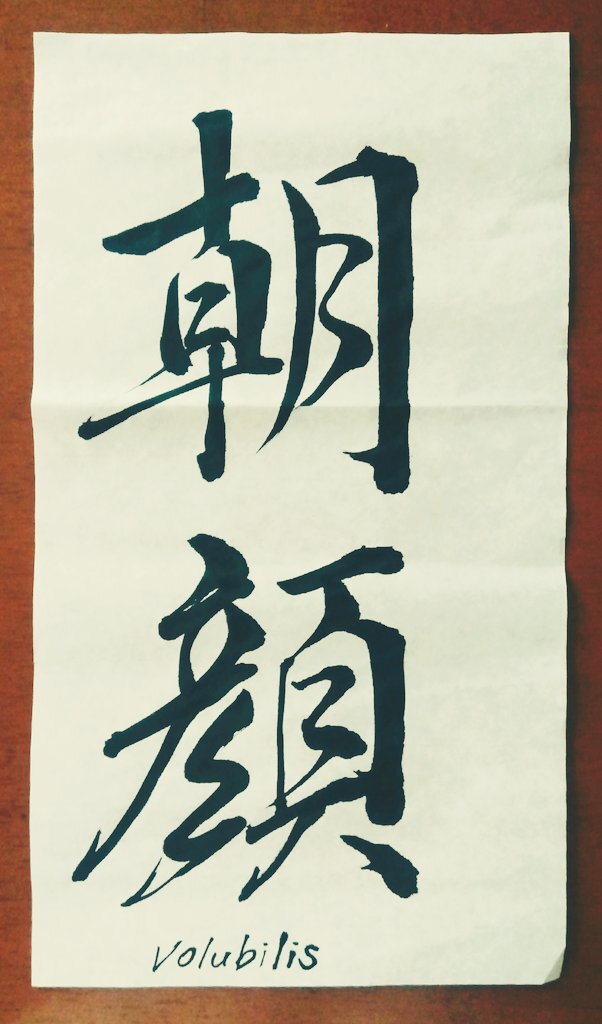 朝
顔
Volubilis